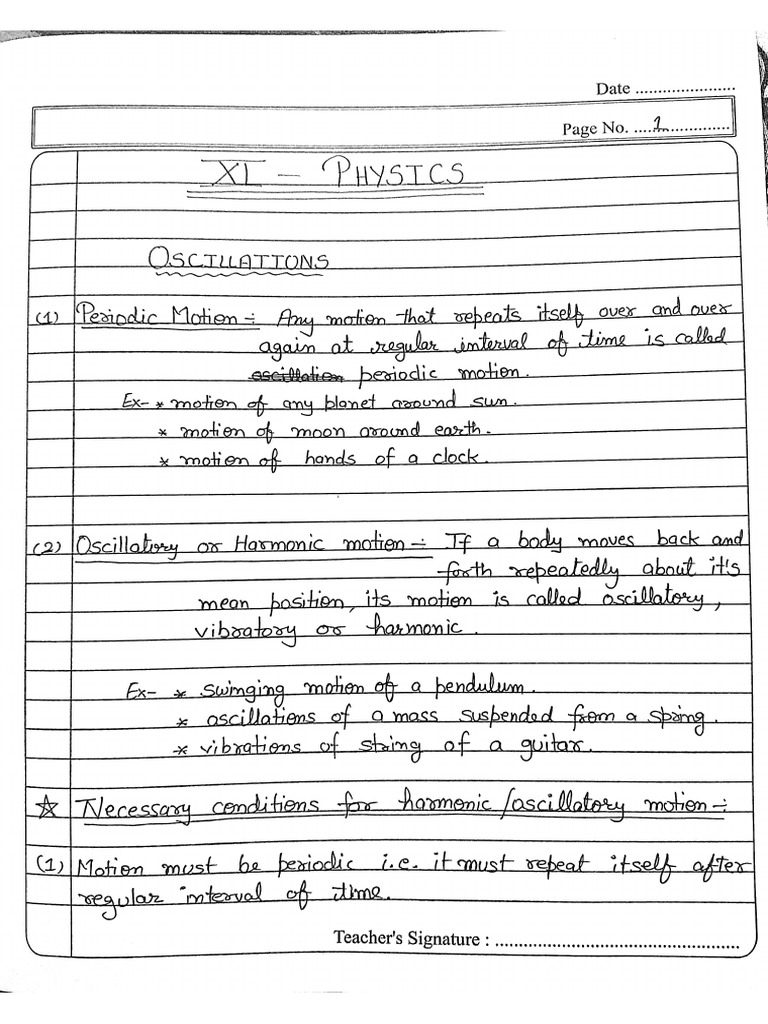 Date ......................
Page No. ....1................
XI - PHYSICS
OSCILLATIONS
(1) Periodic Motion :- Any motion that repeats itself over and over
again at regular interval of time is called
oscillation periodic motion.
Ex- * motion of any planet around sun.
* motion of moon around earth.
* motion of hands of a clock.
(2) Oscillatory or Harmonic motion :- If a body moves back and
forth repeatedly about it's
mean position, its motion is called oscillatory,
vibratory or harmonic.
Ex- * swinging motion of a pendulum.
* oscillations of a mass suspended from a spring.
* vibrations of string of a guitar.
☆ Necessary conditions for harmonic/ascillatory motion :-
(1) Motion must be periodic i.e. it must repeat itself after
regular interval of time.
Teacher's Signature : ....................................................